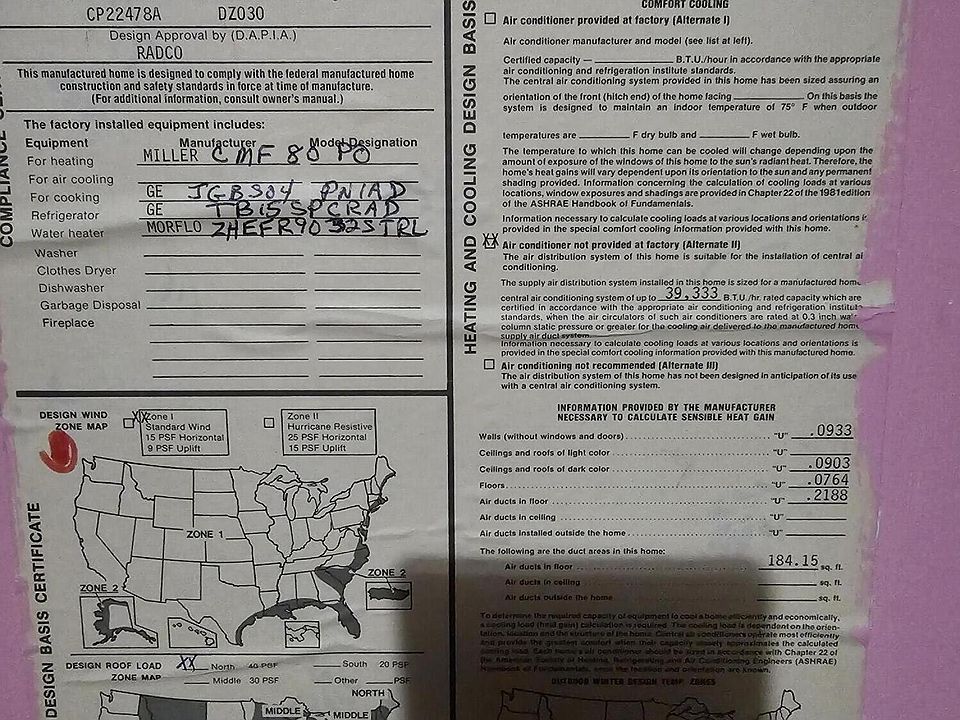 CP22478A DZ030
Design Approval by (D.A.P.I.A.)
RADCO
This manufactured home is designed to comply with the federal manufactured home
construction and safety standards in force at time of manufacture.
(For additional information, consult owner's manual.)
The factory installed equipment includes:
Equipment Manufacturer Model Designation
For heating MILLER CMF 80 PO
For air cooling
For cooking GE JGBS04 PNIAD
Refrigerator GE TB15SPCRAD
Water heater MORFLO
Washer
Clothes Dryer
Dishwasher
Garbage Disposal
Fireplace
DESIGN WIND
ZONE MAP
XX Zone I
Standard Wind
15 PSF Horizontal
9 PSF Uplift
Zone II
Hurricane Resistive
25 PSF Horizontal
15 PSF Uplift
ZONE 1
ZONE 2
ZONE 2
DESIGN BASIS CERTIFICATE
DESIGN ROOF LOAD
ZONE MAP
XX North 40 PSF South 20 PSF
Middle 30 PSF Other PSF
NORTH
MIDDLE
MIDDLE
HEATING AND COOLING DESIGN BASIS
COMFORT COOLING
Air conditioner provided at factory (Alternate I)
Air conditioner manufacturer and model (see list at left).
Certified capacity — B.T.U./hour in accordance with the appropriate
air conditioning and refrigeration institute standards.
The central air conditioning system provided in this home has been sized assuring an
orientation of the front (hitch end) of the home facing On this basis the
system is designed to maintain an indoor temperature of 75° F when outdoor
temperatures are F dry bulb and F wet bulb.
The temperature to which this home can be cooled will change depending upon the
amount of exposure of the windows of this home to the sun's radiant heat. Therefore, the
home's heat gains will vary dependent upon its orientation to the sun and any permanent
shading provided. Information concerning the calculation of cooling loads at various
locations, window exposures and shadings are provided in Chapter 22 of the 1981 edition
of the ASHRAE Handbook of Fundamentals.
Information necessary to calculate cooling loads at various locations and orientations is
provided in the special comfort cooling information provided with this home.
XX Air conditioner not provided at factory (Alternate II)
The air distribution system of this home is suitable for the installation of central air
conditioning.
The supply air distribution system installed in this home is sized for a manufactured home
central air conditioning system of up to 39,333 B.T.U./hr. rated capacity which are
certified in accordance with the appropriate air conditioning and refrigeration institute
standards, when the air circulators of such air conditioners are rated at 0.3 inch water
column static pressure or greater for the cooling air delivered to the manufactured home
supply air duct system.
Information necessary to calculate cooling loads at various locations and orientations is
provided in the special comfort cooling information provided with this manufactured home.
Air conditioning not recommended (Alternate III)
The air distribution system of this home has not been designed in anticipation of its use
with a central air conditioning system.
INFORMATION PROVIDED BY THE MANUFACTURER
NECESSARY TO CALCULATE SENSIBLE HEAT GAIN
Walls (without windows and doors) "U" .0933
Ceilings and roofs of light color "U"
Ceilings and roofs of dark color "U" .0903
Floors "U" .0764
Air ducts in floor "U" .2188
Air ducts in ceiling "U"
Air ducts installed outside the home "U"
The following are the duct areas in this home:
Air ducts in floor 184.15 sq. ft.
Air ducts in ceiling sq. ft.
Air ducts outside the home sq. ft.
To determine the required capacity of equipment to cool a home efficiently and economically,
a cooling load (heat gain) calculation is required. The cooling load is dependent on the orien-
tation, location and the structure of the home. Central air conditioners operate most efficiently
and provide the greatest comfort when their capacity closely approximates the calculated
cooling load. Each home's air conditioner should be sized in accordance with Chapter 22 of
the American Society of Heating, Refrigerating and Air Conditioning Engineers (ASHRAE)
Handbook of Fundamentals, once the location and orientation are known.
OUTDOOR WINTER DESIGN TEMP. ZONES